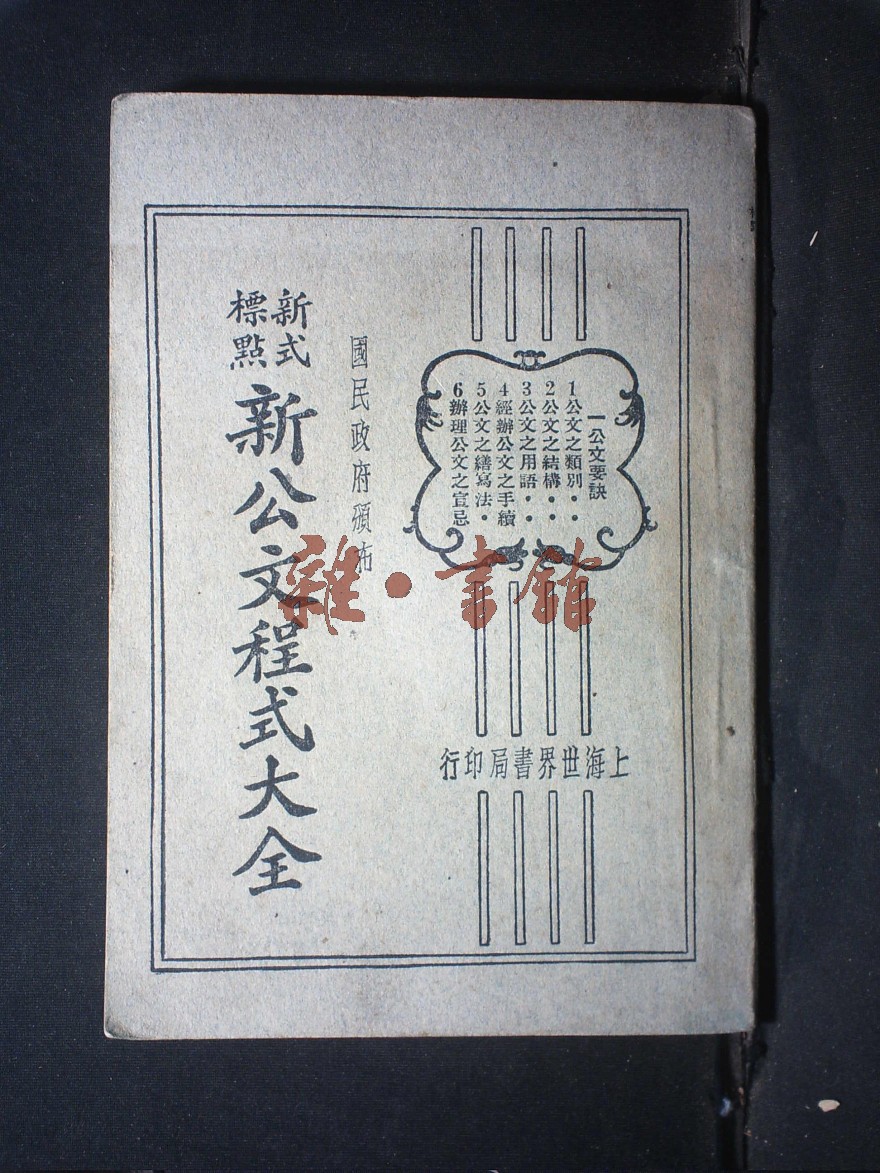 一公文要訣
1公文之類別・・
2公文之結構・・
3公文之用語・・
4經辦公文之手續
5公文之繕寫法・
6辦理公文之宣忌
國民政府頒布
新式
標點
新公文程式大全
上海世界書局印行
雜・書館